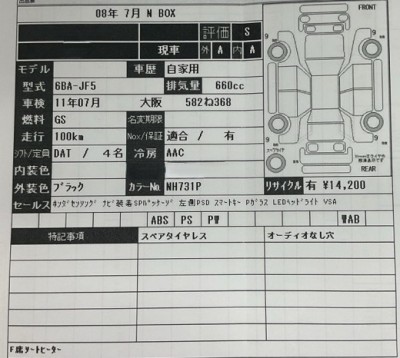 08年 7月 N BOX
評価 S
現車 外 A 内 A
モデル 車歴 自家用
型式 6BA-JF5 排気量 660cc
車検 11年07月 大阪 582ね368
燃料 GS 名変期限
走行 100km Nox/保証 適合 / 有
シフト/定員 DAT / 4名 冷房 AAC
内装色
外装色 ブラック カラーNo. NH731P リサイクル 有 ¥14,200
セールス ホンダセンシング ナビ装着SPパッケージ 左側PSD スマートキー Pガラス LEDヘッドライト VSA
ABS PS PW WAB
特記事項 スペアタイヤレス オーディオなし穴
F席シートヒーター
FRONT
9 9
9 9
スペアタイヤ
REAR